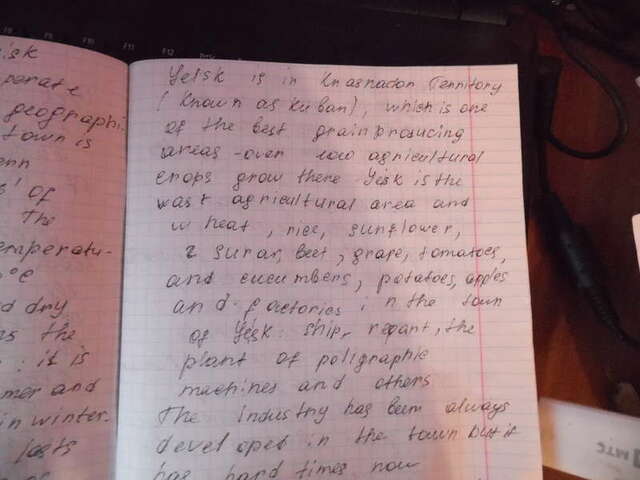 isk
perate
geographi-
town is
enn
s' of
The
emperatu-
°C
d dry
ns the
: it is
mer and
in winter.
Yeisk is in Knasnadon Territory
(Known as Kuban), which is one
of the best grain producing
areas - over 100 agricultural
crops grow there Yeisk is the
vast agricultural area and
wheat, rice, sunflower,
sugar, beet, grape, tomatoes,
and cucumbers, potatoes, apples
and factories in the town
of Yeisk: ship, repant, the
plant of poligraphic
machines and others
The Industry has been always
developet in the town but it
has hard times now
F9
F10
F11
F12
МТС